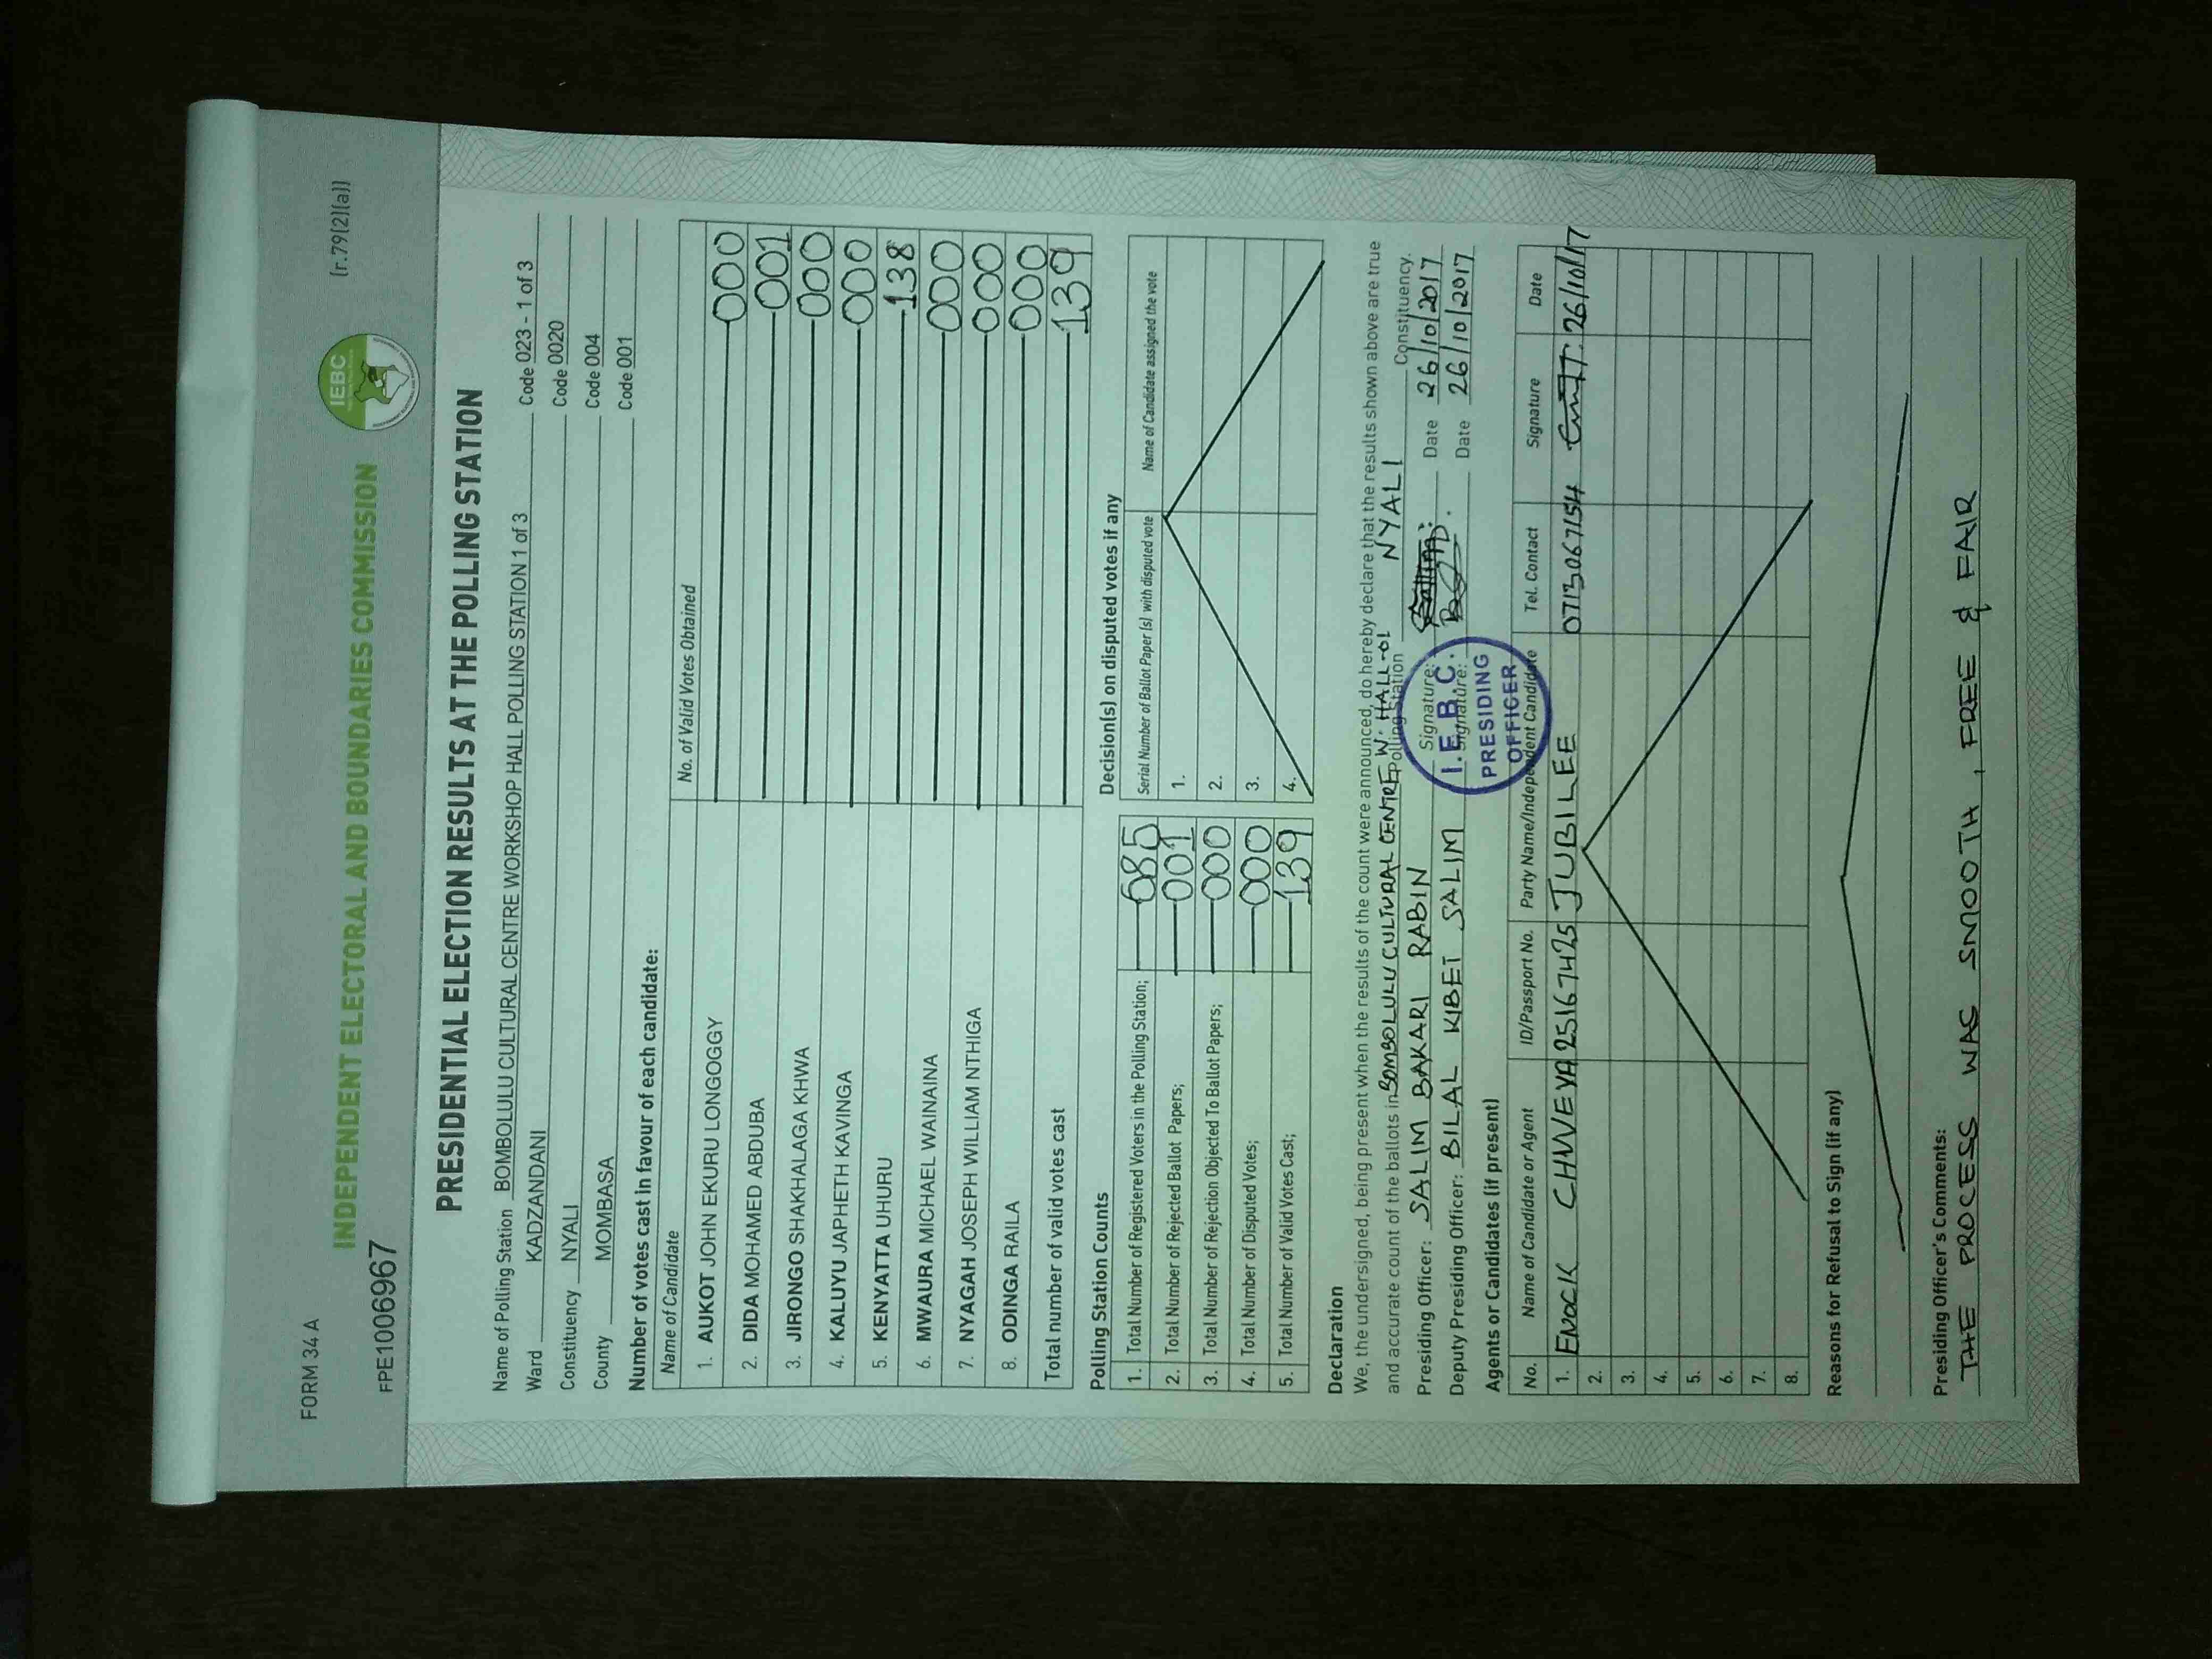 FORM 34 A
INDEPENDENT ELECTORAL AND BOUNDARIES COMMISSION
IEBC
(r.79(2)(a))
FPE1006967
PRESIDENTIAL ELECTION RESULTS AT THE POLLING STATION
Name of Polling Station BOMBOLULU CULTURAL CENTRE WORKSHOP HALL POLLING STATION 1 of 3 Code 023 - 1 of 3
Ward KADZANDANI Code 0020
Constituency NYALI Code 004
County MOMBASA Code 001
Number of votes cast in favour of each candidate:
Name of Candidate No. of Valid Votes Obtained
1. AUKOT JOHN EKURU LONGOGGY 000
2. DIDA MOHAMED ABDUBA 001
3. JIRONGO SHAKHALAGA KHWA 000
4. KALUYU JAPHETH KAVINGA 000
5. KENYATTA UHURU 138
6. MWAURA MICHAEL WAINAINA 000
7. NYAGAH JOSEPH WILLIAM NTHIGA 000
8. ODINGA RAILA 000
Total number of valid votes cast 139
Polling Station Counts
1. Total Number of Registered Voters in the Polling Station; 685
2. Total Number of Rejected Ballot Papers; 001
3. Total Number of Rejection Objected To Ballot Papers; 000
4. Total Number of Disputed Votes; 000
5. Total Number of Valid Votes Cast; 139
Decision(s) on disputed votes if any
Serial Number of Ballot Paper (s) with disputed vote Name of Candidate assigned the vote
1.
2.
3.
4.
Declaration
We, the undersigned, being present when the results of the count were announced, do hereby declare that the results shown above are true
and accurate count of the ballots in BOMBOLULU CULTURAL CENTRE W. HALL-01 Polling Station NYALI Constituency.
Presiding Officer: SALIM BAKARI RABIN Signature: Date 26/10/2017
Deputy Presiding Officer: BILAL KIBET SALIM Signature: Date 26/10/2017
I.E.B.C.
PRESIDING
OFFICER
Agents or Candidates (if present)
No. Name of Candidate or Agent ID/Passport No. Party Name/Independent Candidate Tel. Contact Signature Date
1. ENOCK CHWEYA 25167425 JUBILEE 0713067154 26/10/17
2.
3.
4.
5.
6.
7.
8.
Reasons for Refusal to Sign (if any)
Presiding Officer's Comments:
THE PROCESS WAS SMOOTH, FREE & FAIR